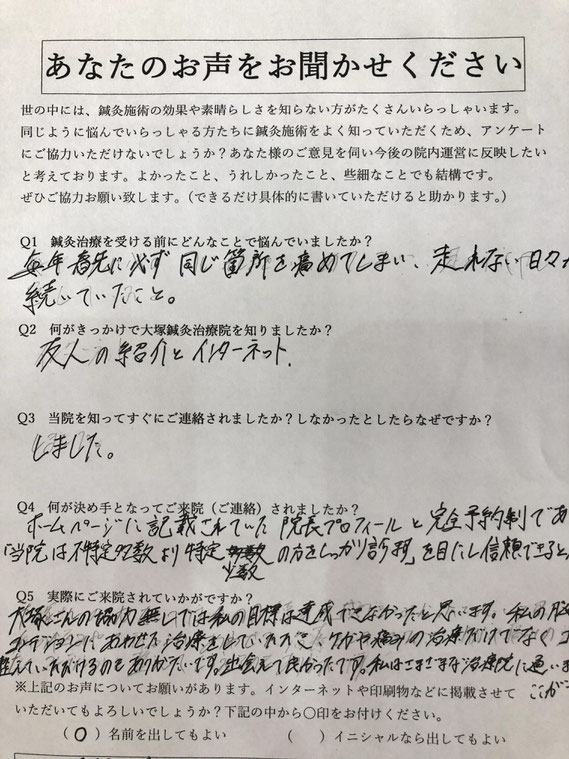 あなたのお声をお聞かせください
世の中には、鍼灸施術の効果や素晴らしさを知らない方がたくさんいらっしゃいます。
同じように悩んでいらっしゃる方たちに鍼灸施術をよく知っていただくため、アンケート
にご協力いただけないでしょうか?あなた様のご意見を伺い今後の院内運営に反映したい
と考えております。よかったこと、うれしかったこと、些細なことでも結構です。
ぜひご協力お願い致します。(できるだけ具体的に書いていただけると助かります。)
Q1 鍼灸治療を受ける前にどんなことで悩んでいましたか?
毎年春先に必ず同じ箇所を痛めてしまい、走れない日々が
続いていたこと。
Q2 何がきっかけで大塚鍼灸治療院を知りましたか?
友人の紹介とインターネット.
Q3 当院を知ってすぐにご連絡されましたか?しなかったとしたらなぜですか?
しました。
Q4 何が決め手となってご来院(ご連絡)されましたか?
ホームページに記載されていた院長プロフィールと完全予約制であ
「当院は不特定多数より特定少数の方をしっかり診療」を目にし信頼できると、
Q5 実際にご来院されていかがですか?
大塚さんの協力無しでは私の目標は達成できなかったと思います。私の
コンディションにあわせた治療をしていただき、ケガや痛みの治療だけでなく
整えていただけるのもありがたいです。出会えて良かったです。私はさまざまな治療院に通いま
ここが
※上記のお声についてお願いがあります。インターネットや印刷物などに掲載させて
いただいてもよろしいでしょうか?下記の中から〇印をお付けください。
(〇)名前を出してもよい ( )イニシャルなら出してもよい